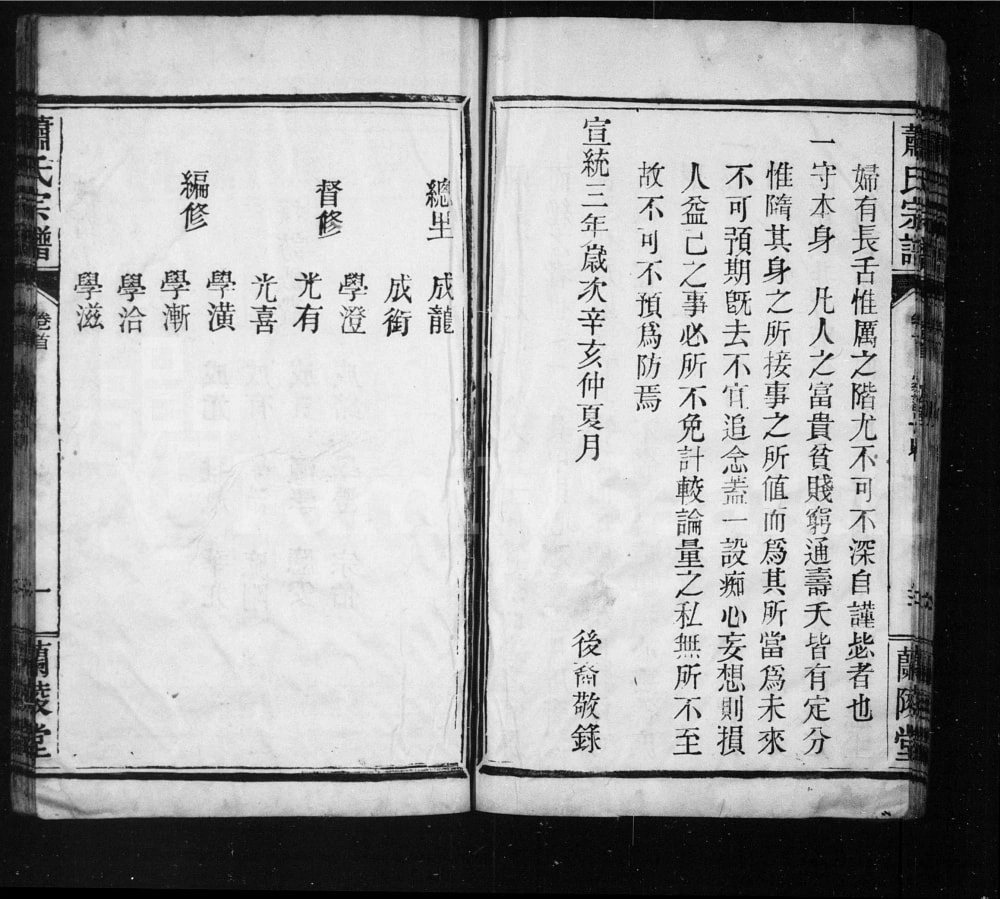 蕭氏宗譜
蘭陵堂
婦有長舌惟厲之階尤不可不深自謹毖者也
一守本身 凡人之富貴貧賤窮通壽夭皆有定分
惟隋其身之所接事之所值而爲其所當爲未來
不可預期旣去不宜追念蓋一設痴心妄想則損
人益己之事必所不免計較論量之私無所不至
故不可不預爲防焉
宣統三年歲次辛亥仲夏月
後裔敬錄
總里 成龍
成銜
督修 學澄
光有
光喜
編修 學潢
學漸
學治
學滋
蕭氏宗譜
卷首
一
蘭陵堂